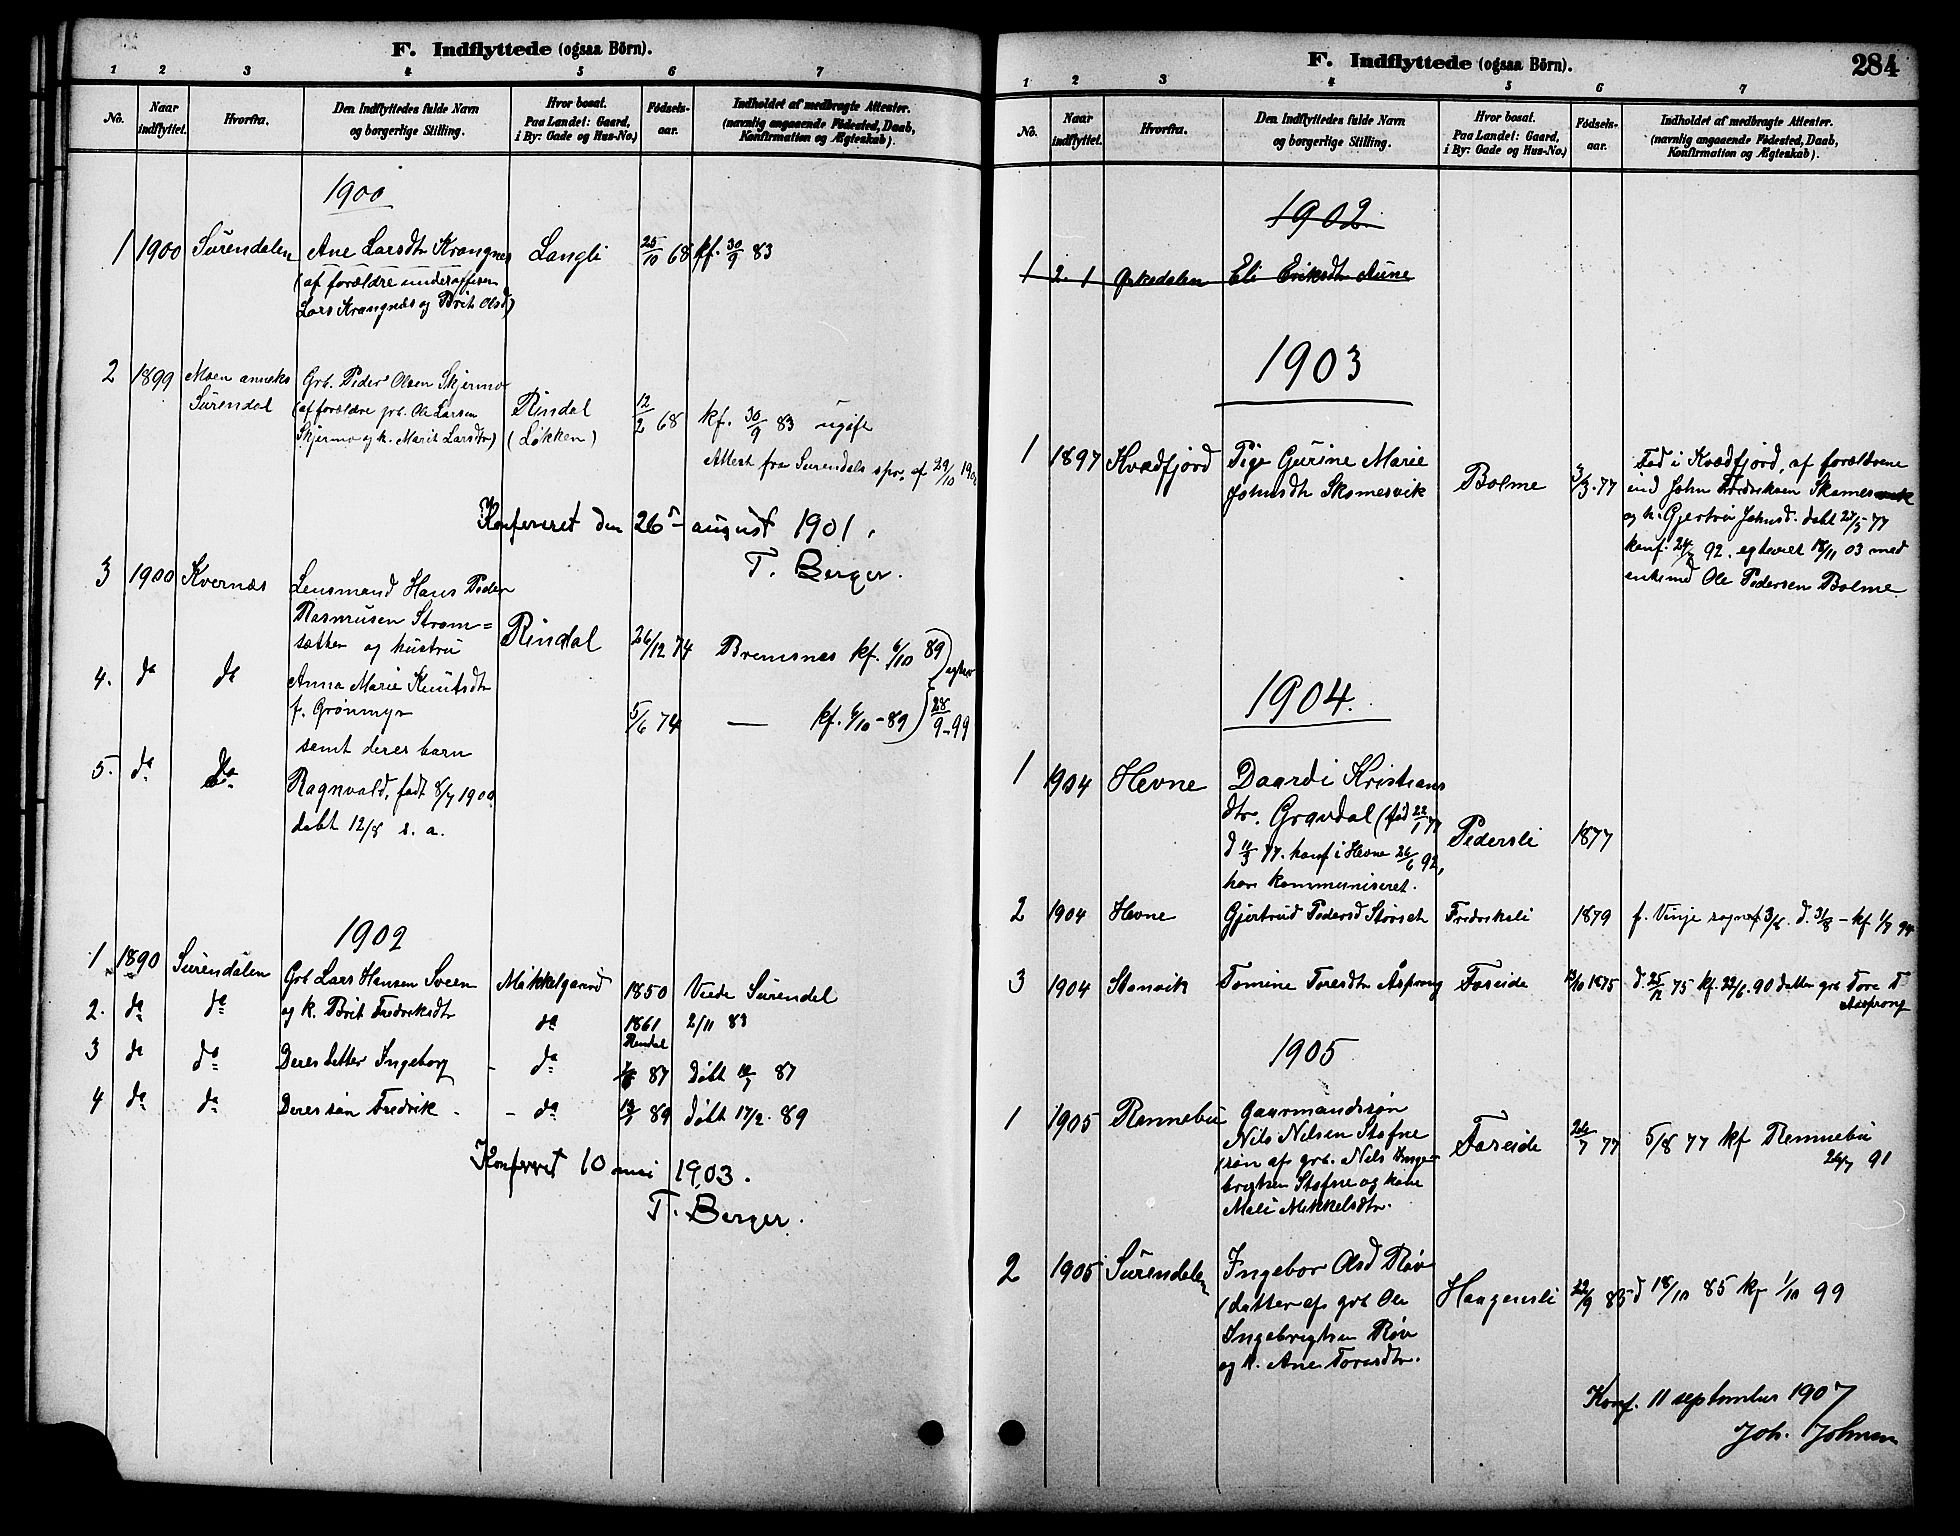 F. Indflyttede (ogsaa Börn).
1 2 3 4 5 6 7
No.
Naar indflyttet.
Hvorfra.
Den Indflyttedes fulde Navn
og borgerlige Stilling.
Hvor bosat.
Paa Landet: Gaard,
i By: Gade og Hus-No.)
Fødsels-
aar.
Indholdet af medbragte Attester.
(navnlig angaaende Fødested, Daab,
Konfirmation og Ægteskab).
1900
1 1900 Surendalen Ane Larsdtr Krangnes Langli 25/10 68 kf. 30/9 83
(af forældre underofficer
Lars Krangnæs og Brit Olsd)
2 1899 Moen anneks Grb. Peder Olsen Skjermo
Surendal (af forældre grb. Ole Larsen Rindal 12/2 68 kf. 30/9 83 ugift
Skjermo og k. Marit Larsdtr) (Løkken)
Attest fra Surendals spr. af 29/10 190
Konfereret den 26 august 1901.
T. Berger.
3 1900 Kvernæs Lensmand Hans Peder
Rasmusen Strøm=
sæther og hustru Rindal 26/12 74 Bremsnes kf. 6/10 89
4. do do Anna Marie Knutsdtr
f. Grønmyr 5/6 74 — kf. 6/10 - 89 28/9 - 99
samt deres barn
5. do do Ragnvald, født 8/7 1900
døbt 12/8 s. a.
1902
1 1890 Surendalen Grb Lars Hansen Sveen Mikkelgaard 1850 Viede Surendal
2. do do og k. Brit Fredriksdtr do 1861 2/11 83
Rindal
3 do do Deres datter Ingeborg - do 87 Døbt 87
4 do do Deres søn Fredrik - - do 89 døbt 17/2 89
Konferert 10 mai 1903.
T. Berger.
F. Indflyttede (ogsaa Börn).
284
1 2 3 4 5 6 7
No.
Naar indflyttet.
Hvorfra.
Den Indflyttedes fulde Navn
og borgerlige Stilling.
Hvor bosat.
Paa Landet: Gaard,
i By: Gade og Hus-No.)
Fødsels-
aar.
Indholdet af medbragte Attester.
(navnlig angaaende Födested, Daab,
Konfirmation og Ægteskab).
1902
1 2. 1 Orkedalen Eli Eriksdtr Aune
1903
1 1897 Kvædfjord Pige Gurine Marie
Johnsdtr Skomesvik Bolme 3/3. 77
Fød i Kvædfjord, af forældrene
eind John Fredriksen Skomesvik
og k. Gjertru Johnsd. døbt 27/5 77
konf. 92. egteviet 18/11 03 med
enkemd Ole Pedersen Bolme.
1904.
1 1904 Hevne Daardi Kristians
dtr. Gravdal (fød 22/1 77
d 11/3 77. konf i Hevne 26/6 92, Pedersli 1877
har kommuniseret.
2 1904 Hevne Gjertrud Pedersd Størset Fredriksli 1879 f. Vinje sogn 3/6. d. 31/8 - kf 1/7 94
3 1904 Stanvik Tomine Toresdtr Åsprong Foseide 1875 d. 25/12 75 kf. 22/6. 90 datter grb Tore T
Aasprong
1905
1 1905 Rennebu Gaarmandssøn
Nils Nilsen Stofne Foseide 26/7 77 5/8 77 kf Rennebu
(søn af grb. Nils Inge- 26/7 91
brigtsen Stofne og kone
Mali Mikkelsdtr.
2 1905 Surendalen Ingebor Olsd Røv
(datter af grb Ole Haagensli 22/9 85 d 18/10 85 kf 1/10 99
Ingebrigtsen Røv
og k. Ane Toresdtr.
Konf. 11 september 1907
Joh. Johnsen